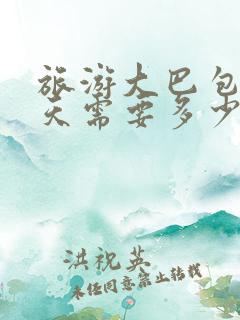 旅游大巴包
天需要多少
洪祝英
未经同意禁止转载